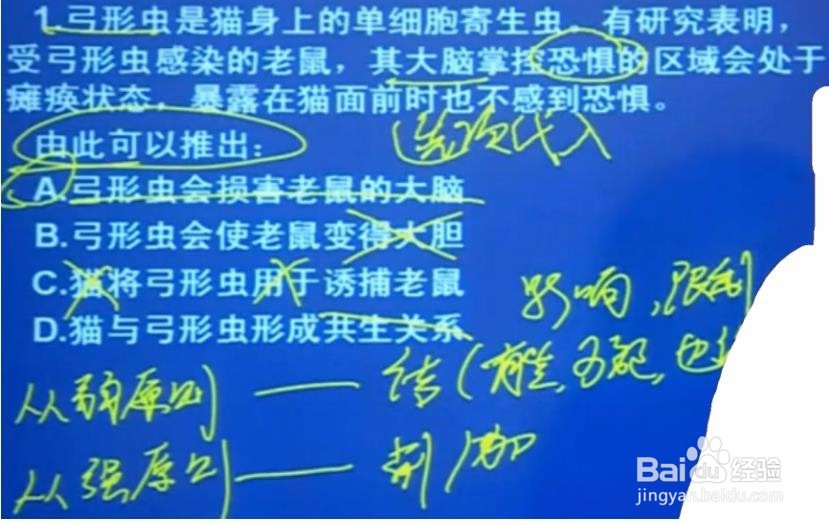 1.弓形虫是猫身上的单细胞寄生虫。有研究表明，
受弓形虫感染的老鼠，其大脑掌控恐惧的区域会处于
瘫痪状态，暴露在猫面前时也不感到恐惧。
由此可以推出：
选项代入
A.弓形虫会损害老鼠的大脑
B.弓形虫会使老鼠变得大胆
C.猫将弓形虫用于诱捕老鼠
影响，限制
D.猫与弓形虫形成共生关系
从弱原则 — 结(可能,
从强原则 — 削/加
Baidu经验
jingyan.baidu.com